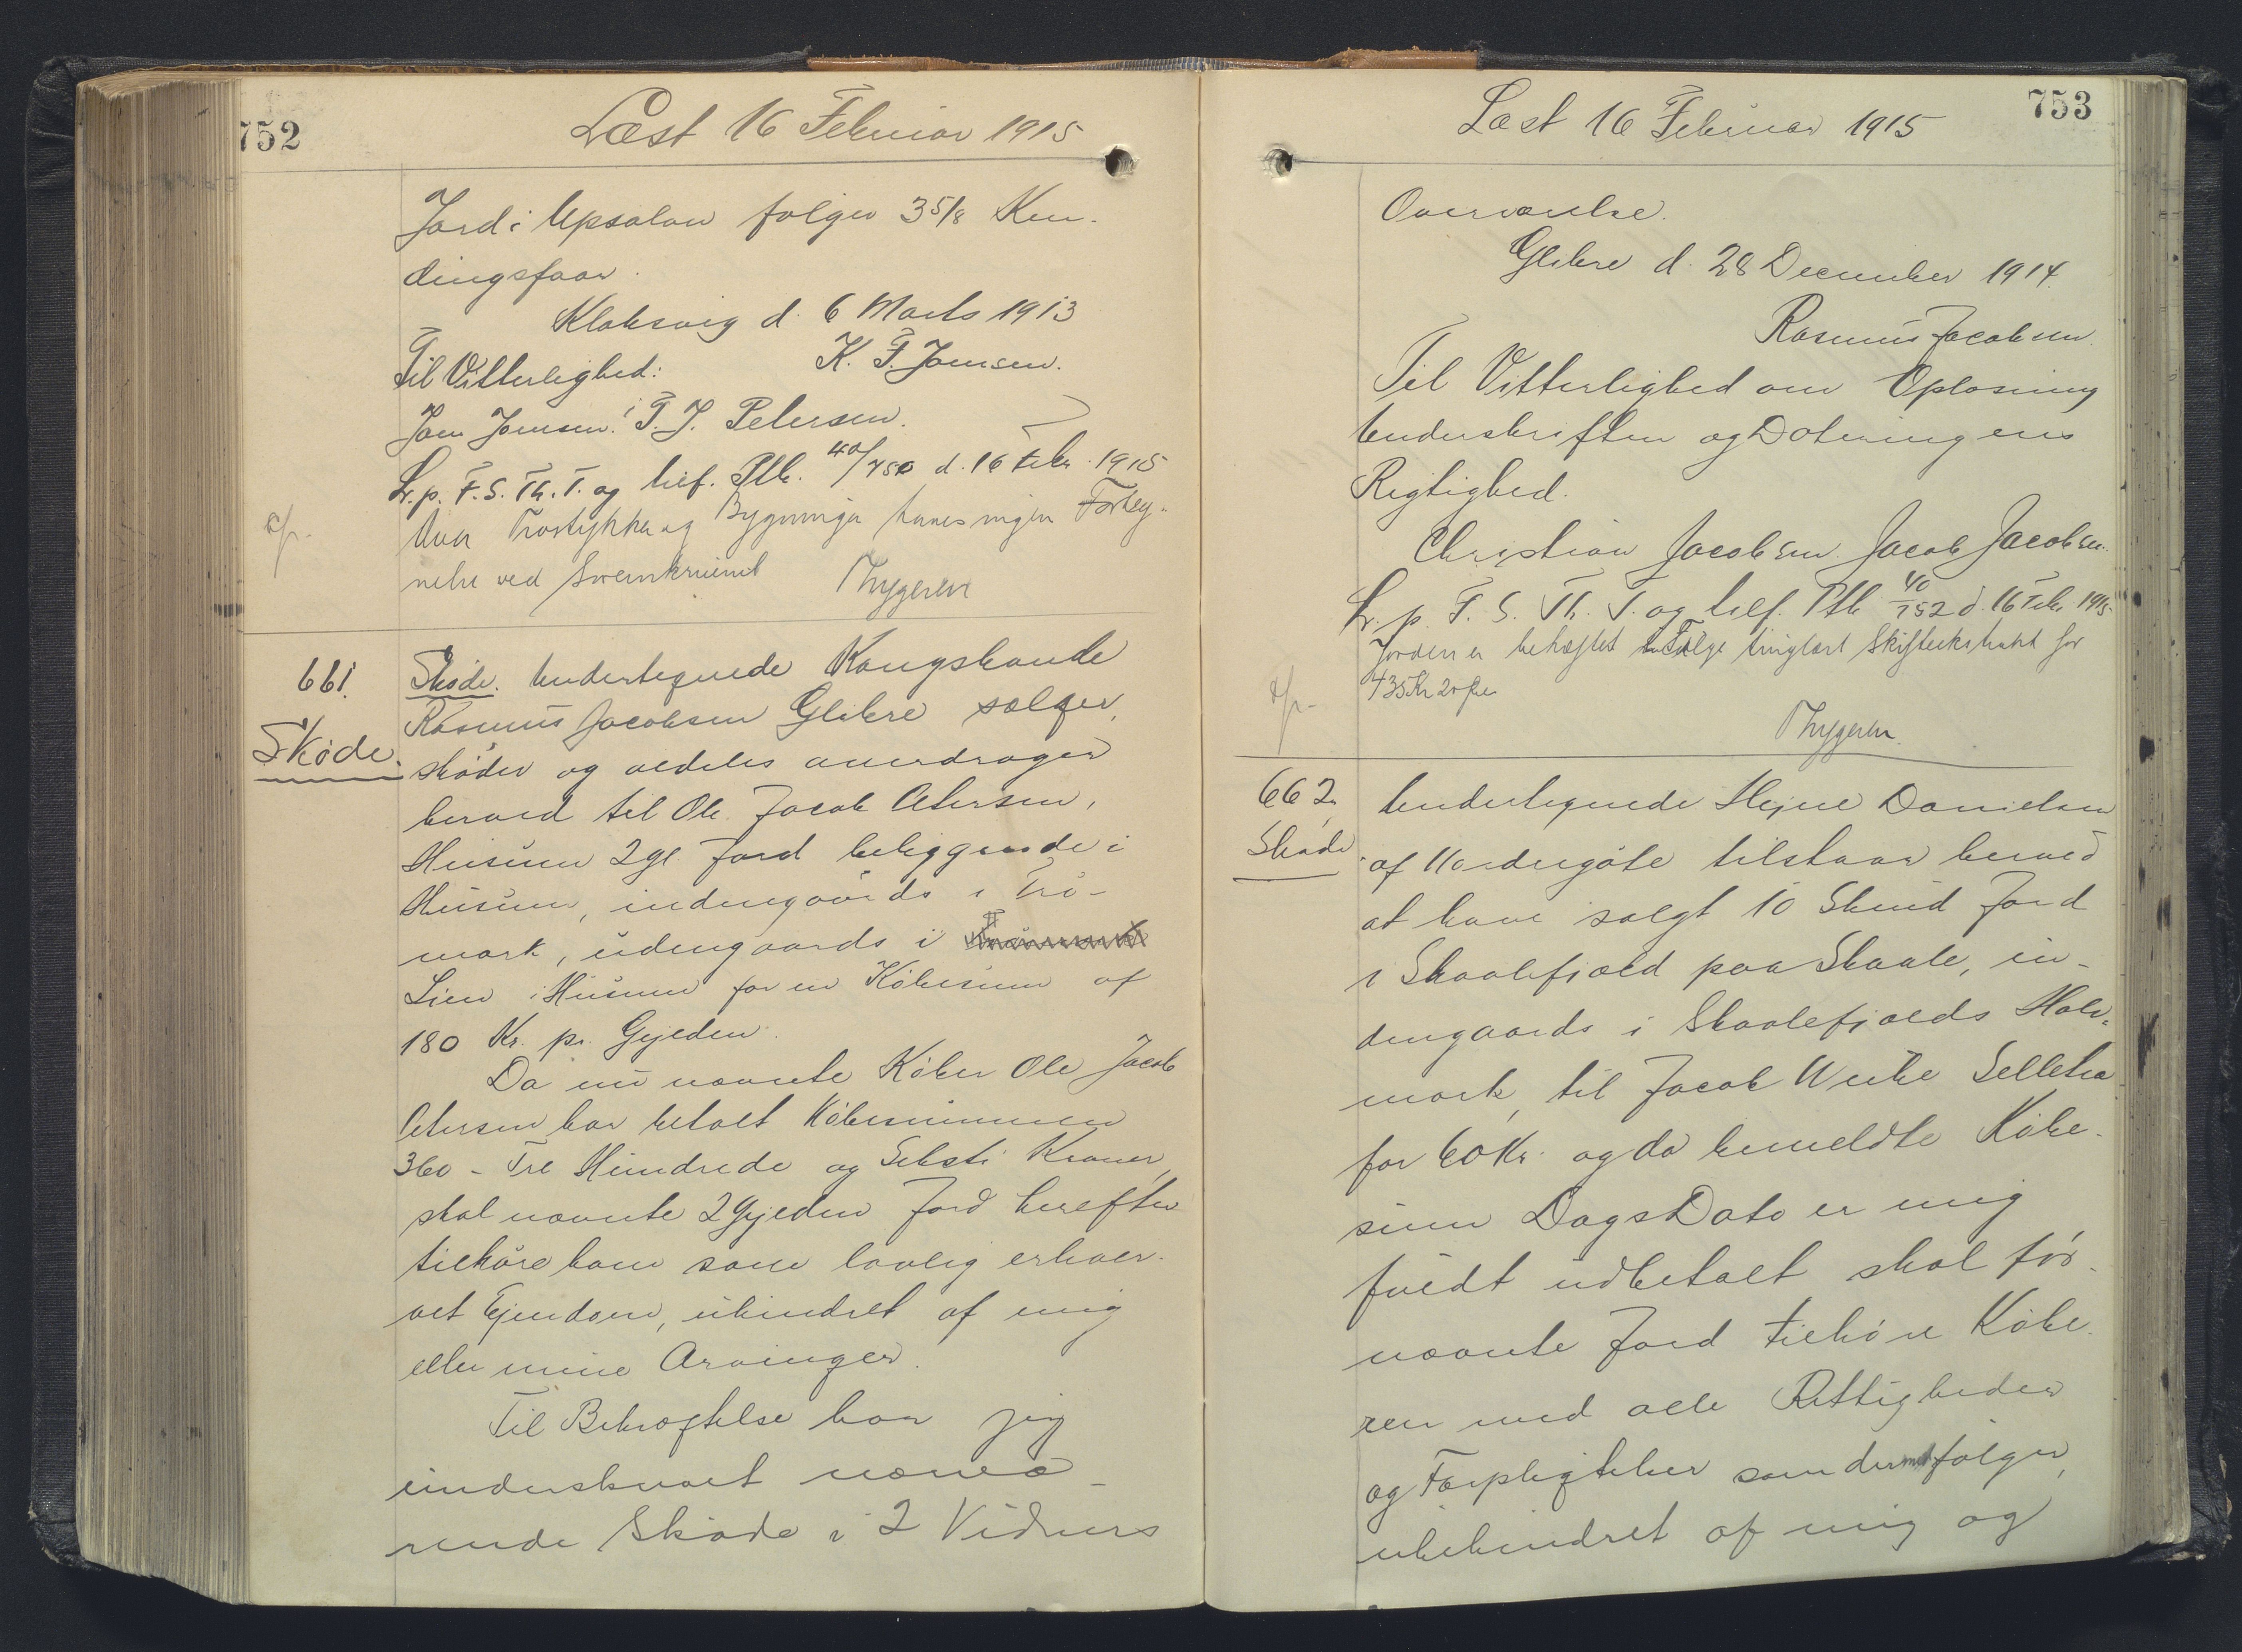 752
Læst 16 Februar 1915
Jord i Upsalen følger 3 5/8 Ken-
dingsfaar.
Klaksvig d. 6 Marts 1913
Til Vitterlighed: K. F. Joensen.
Joen Joensen. P. J. Petersen.
Lr. p. F. S. Th. T. og tilf. Ptb. 40/750 d. 16 Febr. 1915
Hvor Trøstykker og Bygninger haves ingen Forbey-
nelse ved
Thygesen
661.
Skøde.
Skøde. Undertegnede Kongsbonde
Rasmus Jacobsen Glibre sælger,
skøder og aldeles overdrager
herved til Ole Jacob Petersen,
Husum 2 gl. Jord beliggende i
Husum, indengaards i Trø-
mark, udengaards i
Lien i Husum for en Købesum af
180 Kr. pr. Gyleden.
Da nu nævnte Køber Ole Jacob
Petersen har betalt Købesummen
360 - Tre Hundrede og Seksti Kroner,
skal nævnte 2 Gyleden Jord herefter
tilhøre ham som lovlig erhver-
vet Ejendom, uhindret af mig
eller mine Arvinger.
Til Bekræftelse har jeg
underskrevet nærvæ-
rende Skøde i 2 Vidners
753
Læst 16 Februar 1915
Overværelse.
Glibre d. 28 December 1914.
Rasmus Jacobsen.
Til Vitterlighed om Oplæsning
Underskriften og Dateringens
Rigtighed.
Christian Jacobsen. Jacob Jacobsen.
Lr. p. F. S. Th. T. og tilf. Ptb. 40/752 d. 16 Febr 1915.
Jorden er behæftet i Følge tinglæst Skifteekstrakt for
435 Kr 20 Øre
Thygesen.
662.
Skøde.
Undertegnede Hejne Danielsen
af Nordregøte tilstaar herved
at have solgt 10 Skind Jord
i Skaalefjæld paa Skaale, in-
dengaards i Skaalefjælds Halv-
mark, til Jacob Weihe Selletra
for 60 Kr. og da bemeldte Købe-
sum Dags Dato er mig
fuldt udbetalt skal før-
nævnte Jord tilhøre Købe-
ren med alle Rettigheder
og Forpligtelser som dermed følger,
ubehindret af mig og